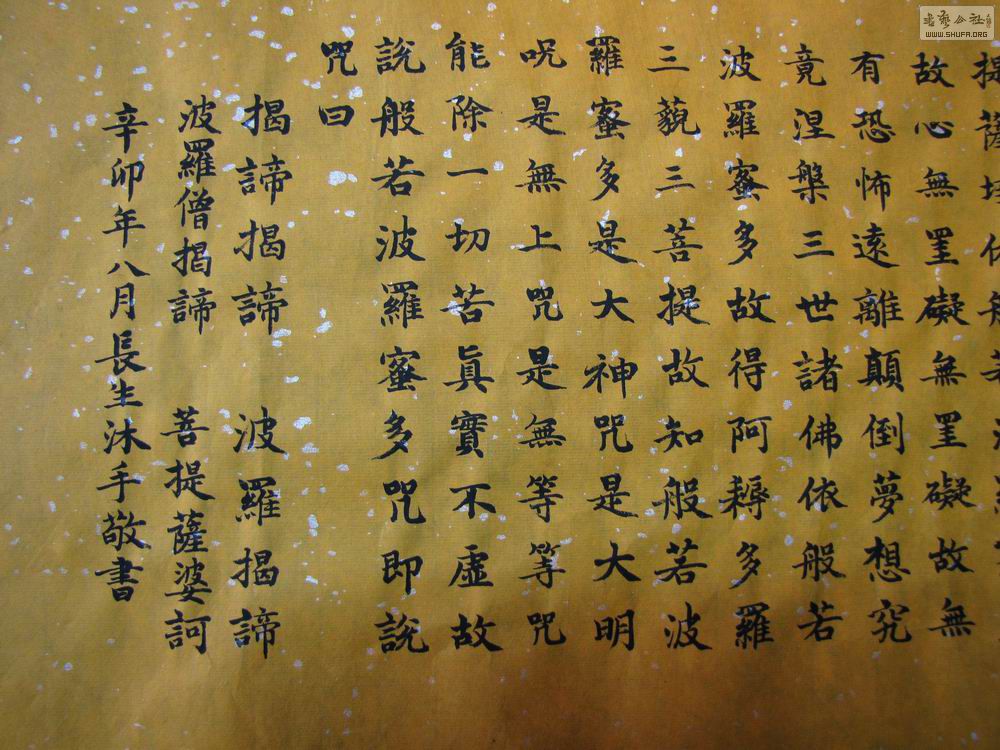 提薩埵依般若
故心無罣礙無罣礙故無
有恐怖遠離顛倒夢想究
竟涅槃三世諸佛依般若
波羅蜜多故得阿耨多羅
三藐三菩提故知般若波
羅蜜多是大神咒是大明
呪是無上咒是無等等咒
能除一切苦眞實不虛故
說般若波羅蜜多咒即說
咒曰
揭諦揭諦 波羅揭諦
波羅僧揭諦 菩提薩婆訶
辛卯年八月長生沐手敬書
WWW.SHUFA.ORG